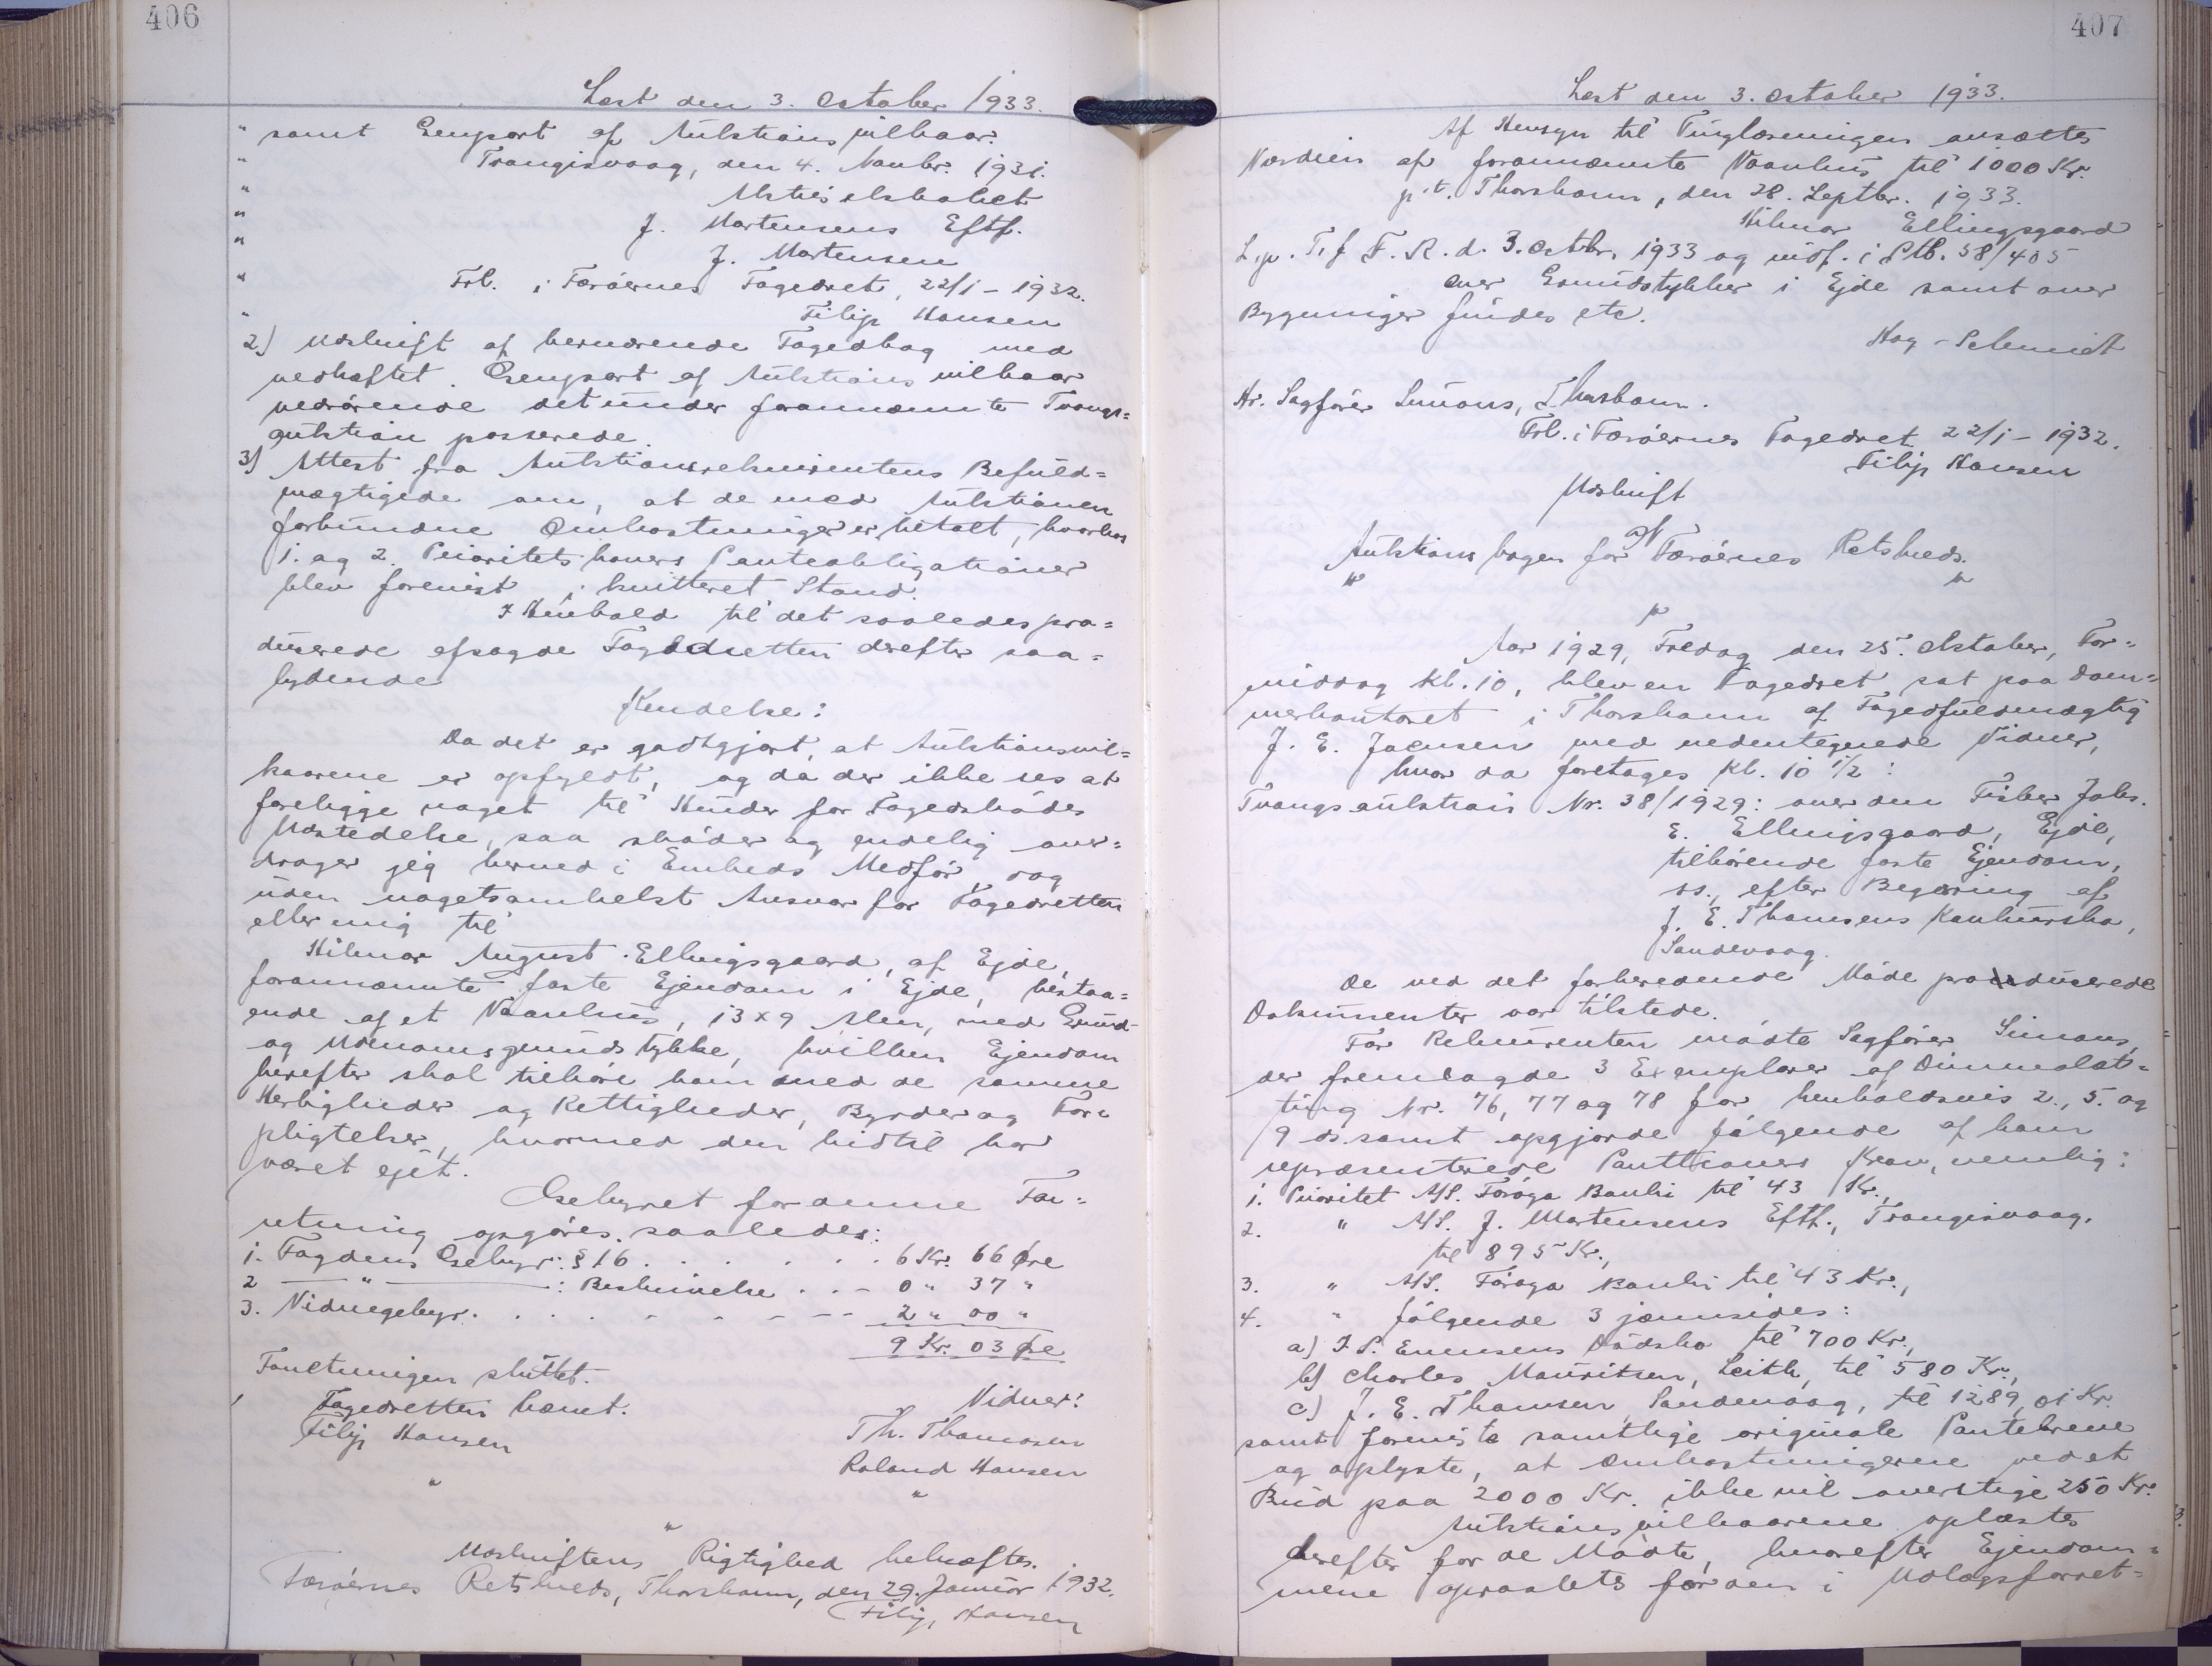 406
Læst den 3. October 1933.
" samt Genpart af Auktionsvilkaar.
" Trangisvaag, den 4. Novbr. 1931.
" Aktieselskabet
" J. Mortensens Eftf.
" J. Mortensen
" Frl. i Færøernes Fogedret, 22/1 - 1932.
" Filip Hansen
2) Udskrift af herværende Fogedbog med
vedhæftet Genpart af Auktionsvilkaar
vedrørende det under forannævnte Tvangs=
auktion passerede.
3) Attest fra Auktionsrekvirentens Befuld=
mægtigede om, at de med Auktionen
forbundne Omkostninger er betalt, hvorhos
1. og 2. Prioritetshavers Panteobligationer
blev forevist i kvitteret Stand.
I Henhold til det saaledes pro=
ducerede afsagde Fogedretten derefter saa=
lydende
Kendelse:
Da det er godtgjort, at Auktionsvil=
kaarene er opfyldt, og da der ikke ses at
foreligge noget til Hinder for Fogedskødes
Udstedelse, saa skøder og endelig over=
drager jeg herved i Embeds Medfør dog
uden nogetsomhelst Ansvar for Fogedretten
eller mig til
Hilmar August Ellingsgaard, af Ejde,
forannævnte faste Ejendom i Ejde, bestaa=
ende af et Vaanhus, 13 x 9 Alen, med Grund-
og Udenomsgrundstykke, hvilken Ejendom
herefter skal tilhøre ham med de samme
Herligheder og Rettigheder, Byrder og For=
pligtelser, hvormed den hidtil har
været ejet.
Gebyret for denne For=
retning opgøres saaledes:
1. Fogdens Gebyr: § 16 . . . . . . 6 Kr. 66 Øre
2 — " — : Beskrivelse . . - 0 " 37 "
3. Vidnegebyr. . . . . - - - - 2 " 00 "
9 Kr. 03 Øre
Forretningen sluttet.
Fogedretten hævet. Vidner:
Filip Hansen Th. Thomasen
" Roland Hansen
"
"
Udskriftens Rigtighed bekræftes.
Færøernes Retskreds, Thorshavn, den 29. Januar 1932.
Filip Hansen
407
Læst den 3. October 1933.
Af Hensyn til Tinglæsningen ansættes
Værdien af forannævnte Vaanhus til 1000 Kr.
p.t. Thorshavn, den 28. Septbr. 1933.
Hilmar Ellingsgaard
L.p. T. f F. R. d. 3. Octbr. 1933 og indf. i Ptb. 58/405
over Grundstykker i Ejde samt over
Bygninger findes etc.
Hoy-Schmidt
Hr. Sagfører Simons, Thorshavn.
Frl. i Færøernes Fogedret 22/1 - 1932.
Filip Hansen
Udskrift
af
Auktionsbogen for Færøernes Retskreds.
" "
"
Aar 1929, Fredag den 25. Oktober, For=
middag Kl. 10, blev en Fogedret sat paa Dom=
merkontoret i Thorshavn af Fogedfuldmægtig
J. E. Joensen med nedentegnede Vidner,
hvor da foretoges Kl. 10 1/2:
Tvangsauktion Nr. 38/1929: over den Fisker Johs.
E. Ellingsgaard, Ejde,
tilhørende faste Ejendom,
ss., efter Begæring af
J. E. Thomsens Konkursbo,
Sandevaag.
De ved det forberedende Møde producerede
Dokumenter var tilstede.
For Rekvirenten mødte Sagfører Simons,
der fremlagde 3 Exemplarer af Dimmalæt=
ting Nr. 76, 77 og 78 for henholdsvis 2., 5. og
9 ds. samt opgjorde følgende af ham
repræsenterede Panthavers Krav, nemlig:
1. Prioritet A/S. Føroya Banki til 43 Kr.,
2. " A/S. J. Mortensens Eftf., Trangisvaag,
til 895 Kr.,
3. " A/S. Føroya Banki til 43 Kr.,
4. " følgende 3 jævnsides:
a) I. S. Evensens Dødsbo til 700 Kr.,
b) Charles Mauritsen, Leith, til 580 Kr.,
c) J. E. Thomsen, Sandevaag, til 1289,01 Kr.
samt foreviste samtlige originale Pantebreve
og oplyste, at Omkostningerne ved et
Bud paa 2000 Kr. ikke vil overstige 250 Kr.
Auktionsvilkaarene oplæstes
derefter for de Mødte, hvorefter Ejendom=
mene opraabtes for den i Udlægsforret=